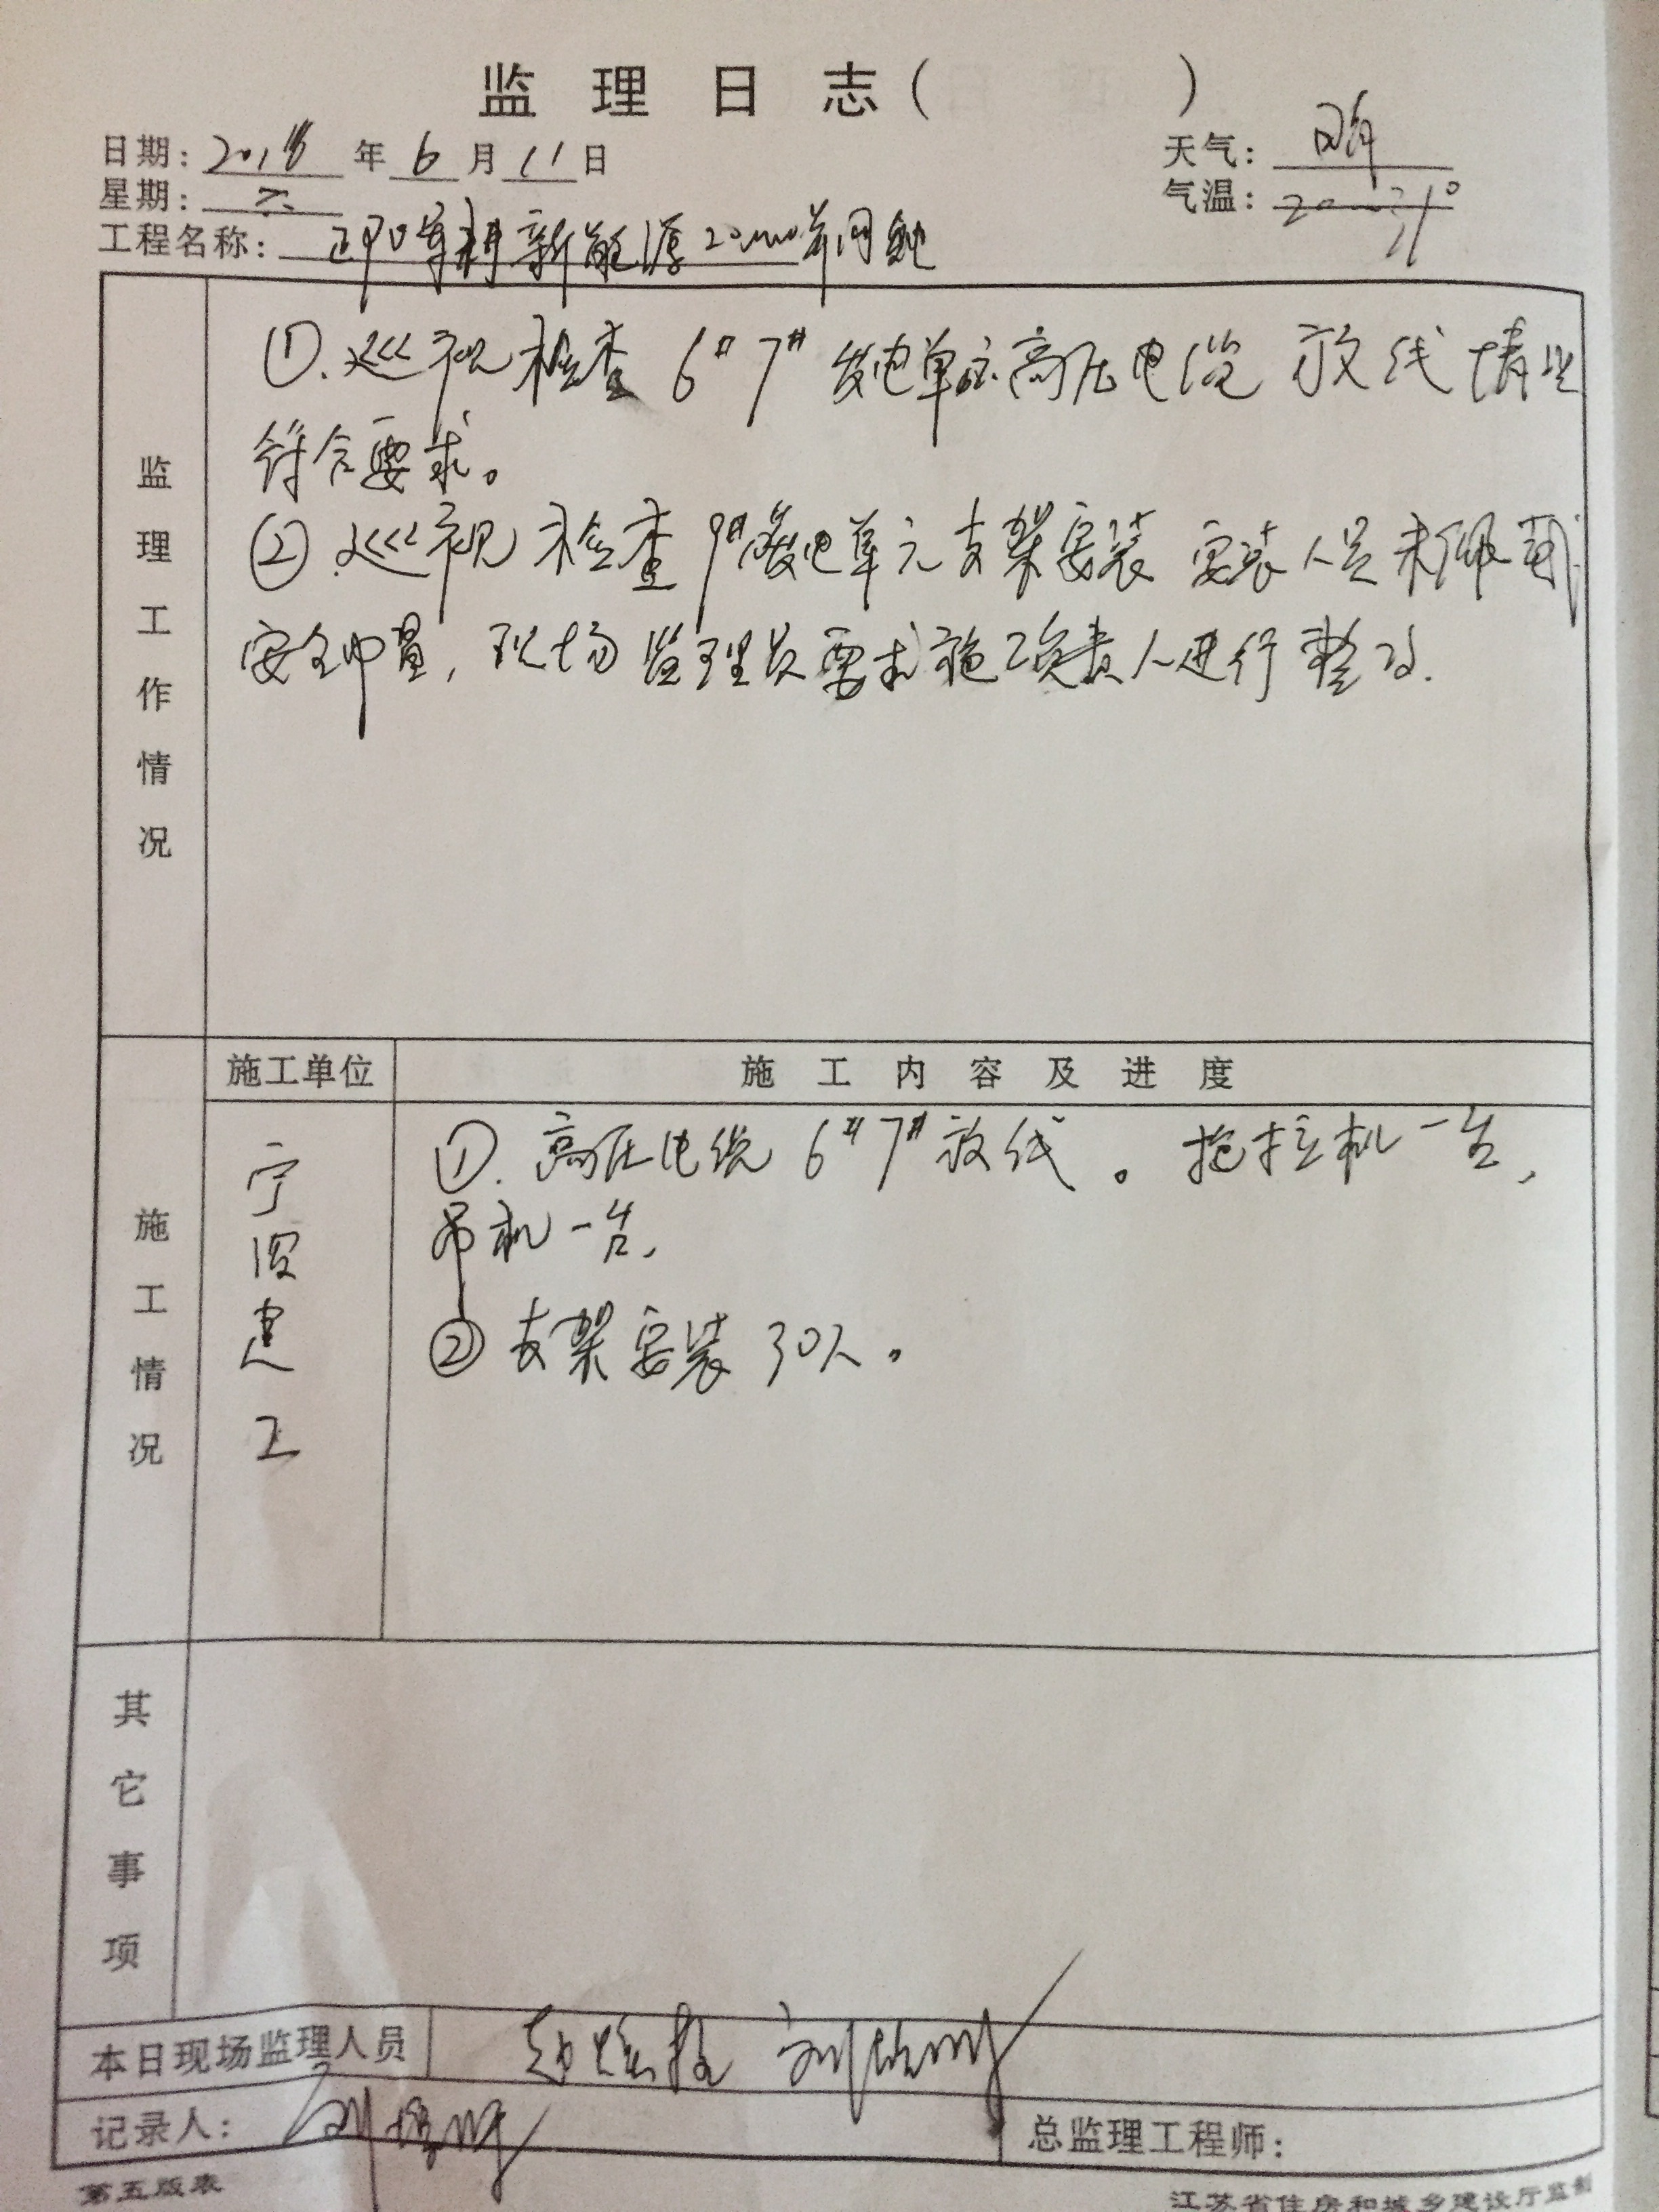 监理日志( )
日期: 201 年 6 月 11 日
天气: 晴
星期: 六
气温: 20 31°
工程名称: 新能源20MW并网
监理工作情况
①.巡视检查6#7#发电单元高压电缆放线情况
符合要求。
②.巡视检查9#发电单元支架安装 安装人员未佩戴
安全帽,现场监理员要求施工负责人进行整改.
施工单位
施工内容及进度
施工情况
宁波建工
①.高压电缆6#7#放线。拖拉机一台,
吊机一台,
②支架安装30人。
其它事项
本日现场监理人员
记录人:
总监理工程师:
第五版表
江苏省住房和城乡建设厅监制